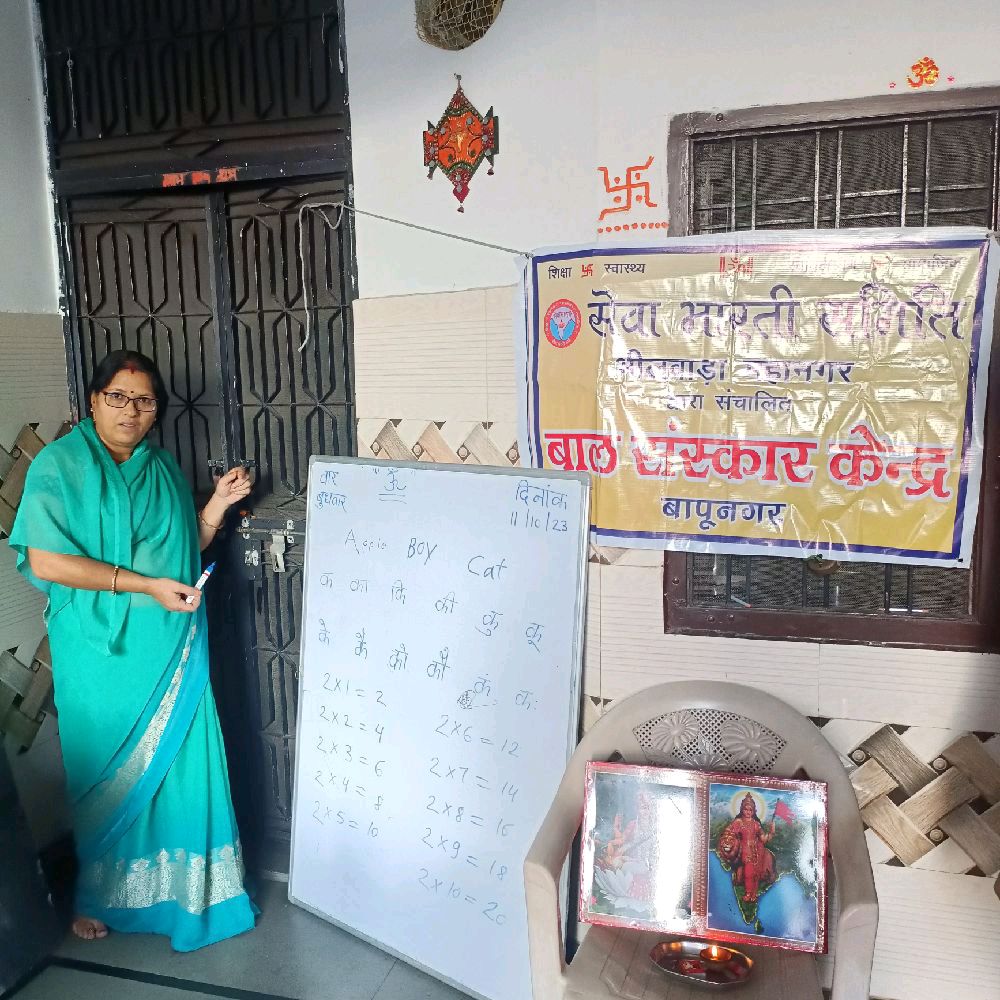 शिक्षा 卐 स्वास्थ्य ॥ॐ॥
सेवा भारती समिति
भीलवाड़ा महानगर
द्वारा संचालित
बाल संस्कार केन्द्र
बापूनगर
वार "ॐ" दिनांक
बुधवार 11/10/23
Apple BOY Cat
क का कि की कु कू
के कै को कौ कं कः
2×1=2
2×2=4
2×3=6
2×4=8
2×5=10
2×6=12
2×7=14
2×8=16
2×9=18
2×10=20
ॐ